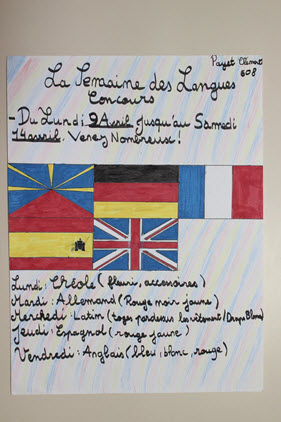 Payet Clément
608
La Semaine des Langues
Concours
- Du Lundi 9 Avril jusqu'au Samedi
14 avril. Venez Nombreux!
Lundi : Créole (fleuri, accessoires)
Mardi : Allemand (Rouge noir jaune)
Merchedi : Latin (toges pardessus les vêtement/Draps Blanc)
Jeudi : Espagnol (rouge jaune)
Vendredi : Anglais (bleu, blanc, rouge)